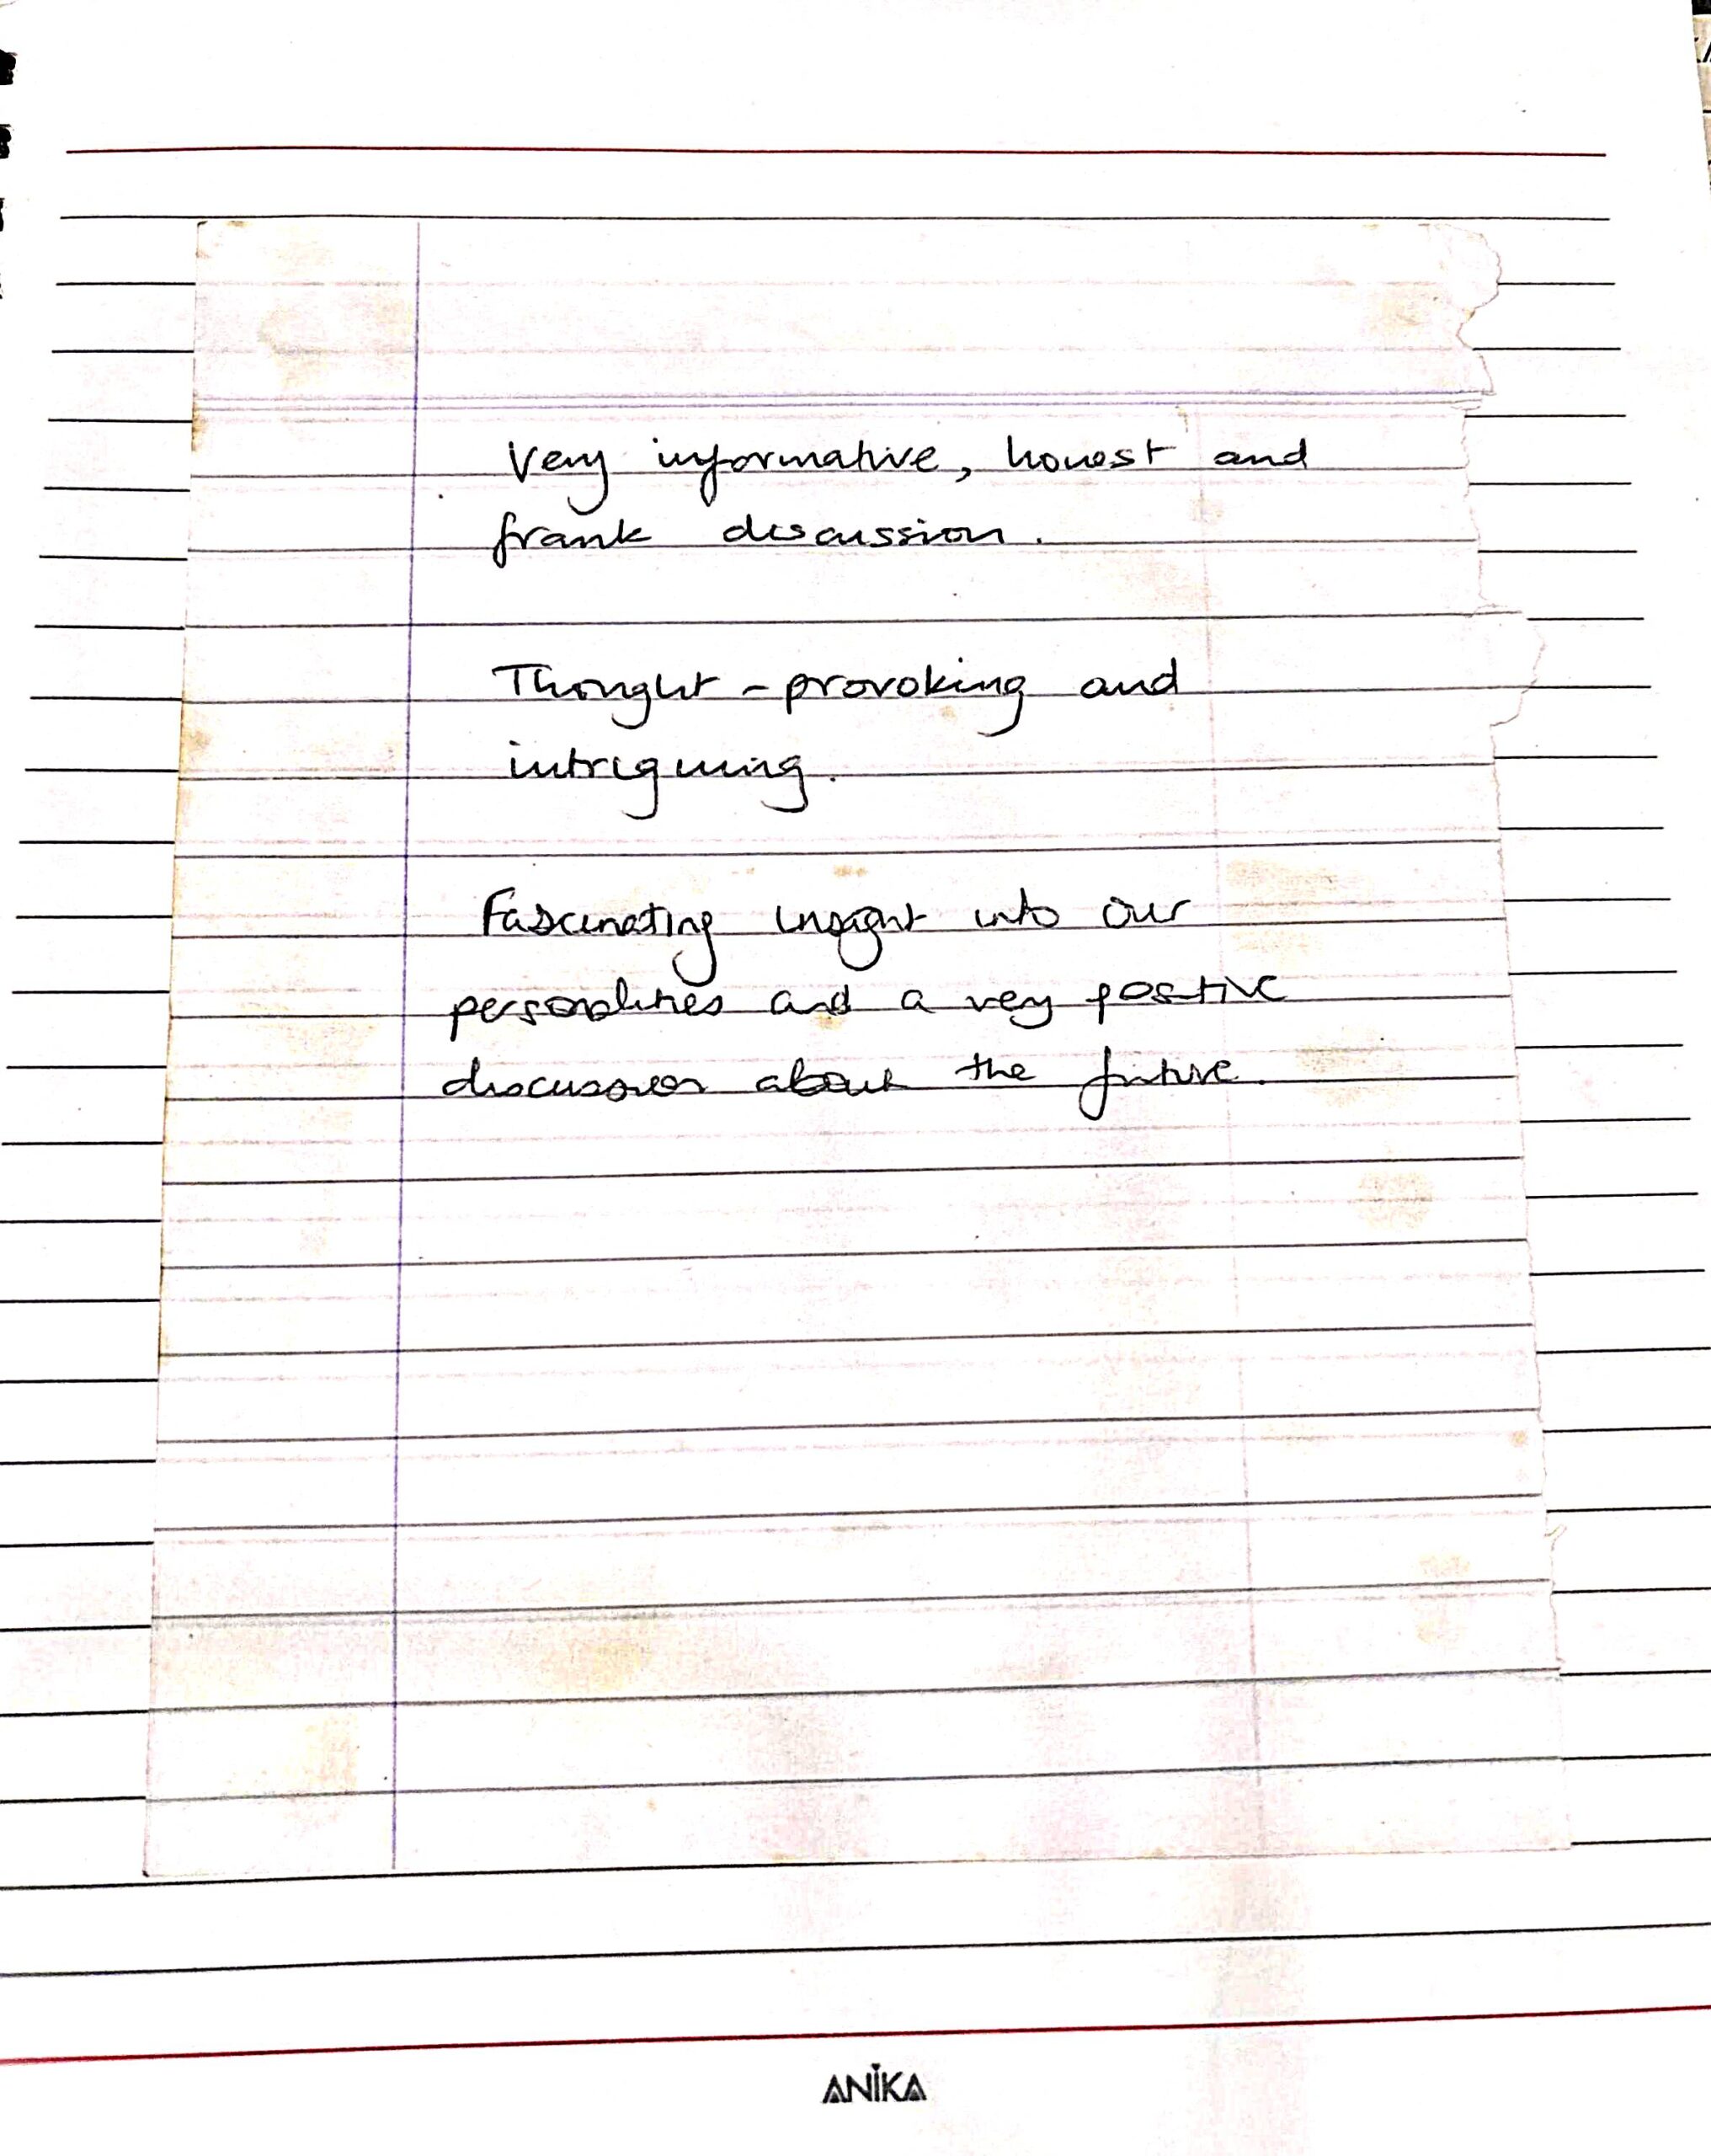 Very informative, honest and
frank discussion.
Thought-provoking and
intriguing.
Fascinating insight into our
personalities and a very postive
discussion about the future.
ANIKA